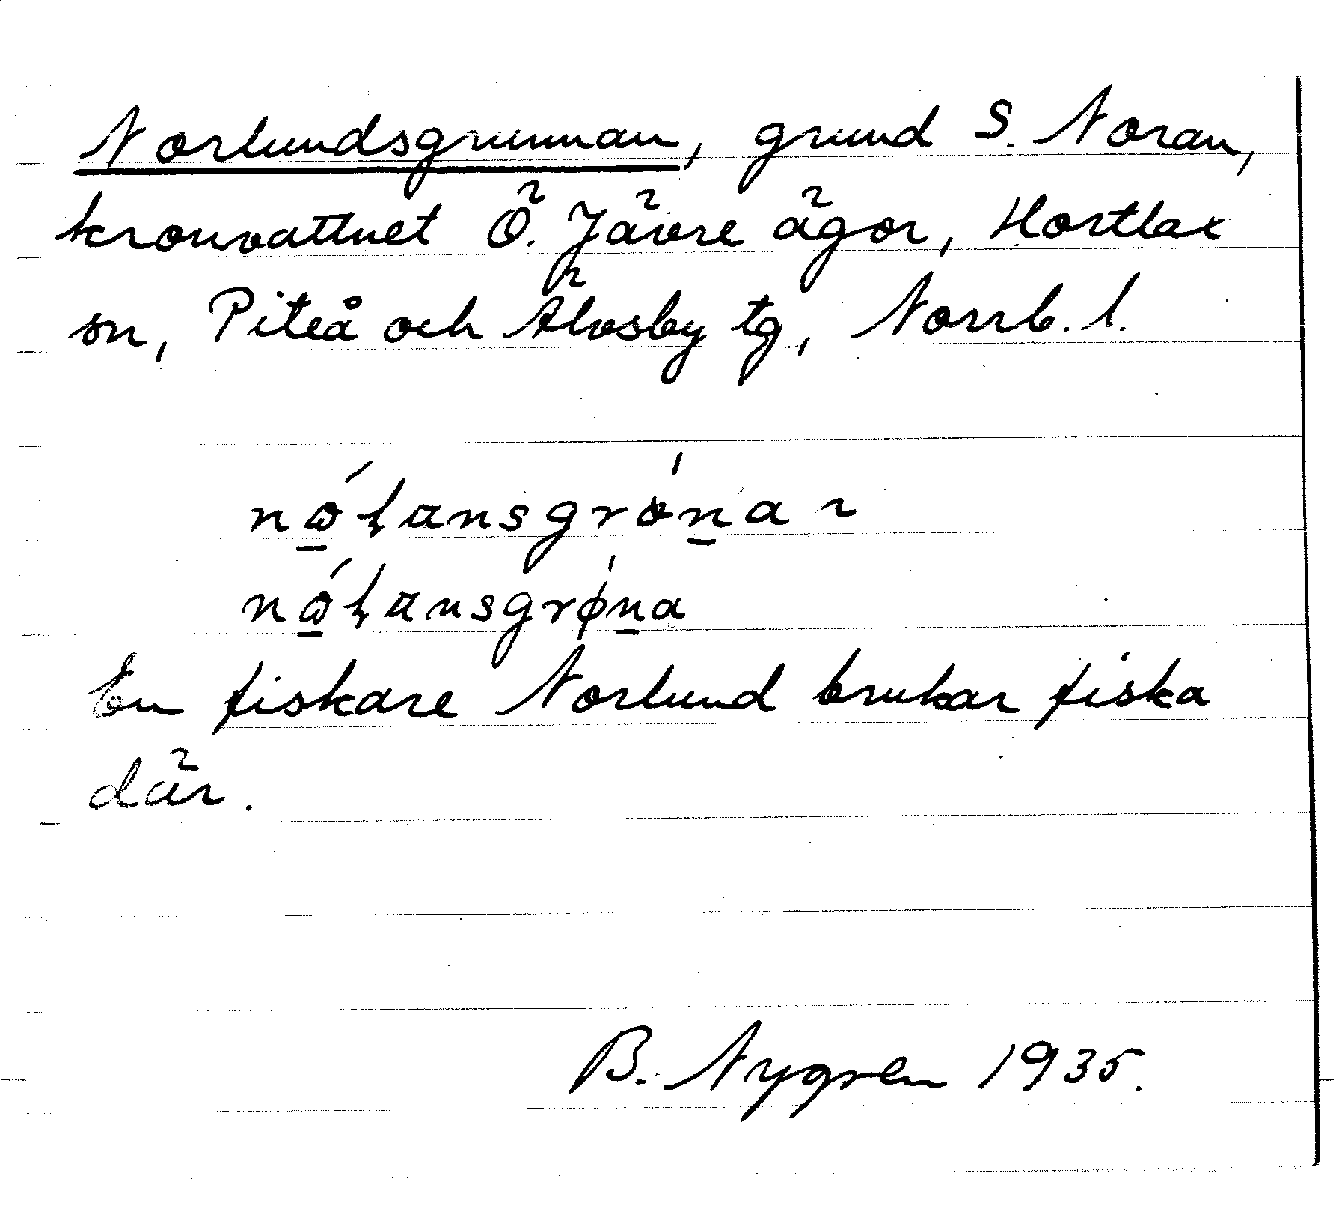 Norlundsgrunnan, grund S. Noran,
kronvattnet Ö. Jävre ägor, Hortlax
sn, Piteå och Älvsby tg, Norrb. l.
En fiskare Norlund brukar fiska
där.
B. Nygren 1935.